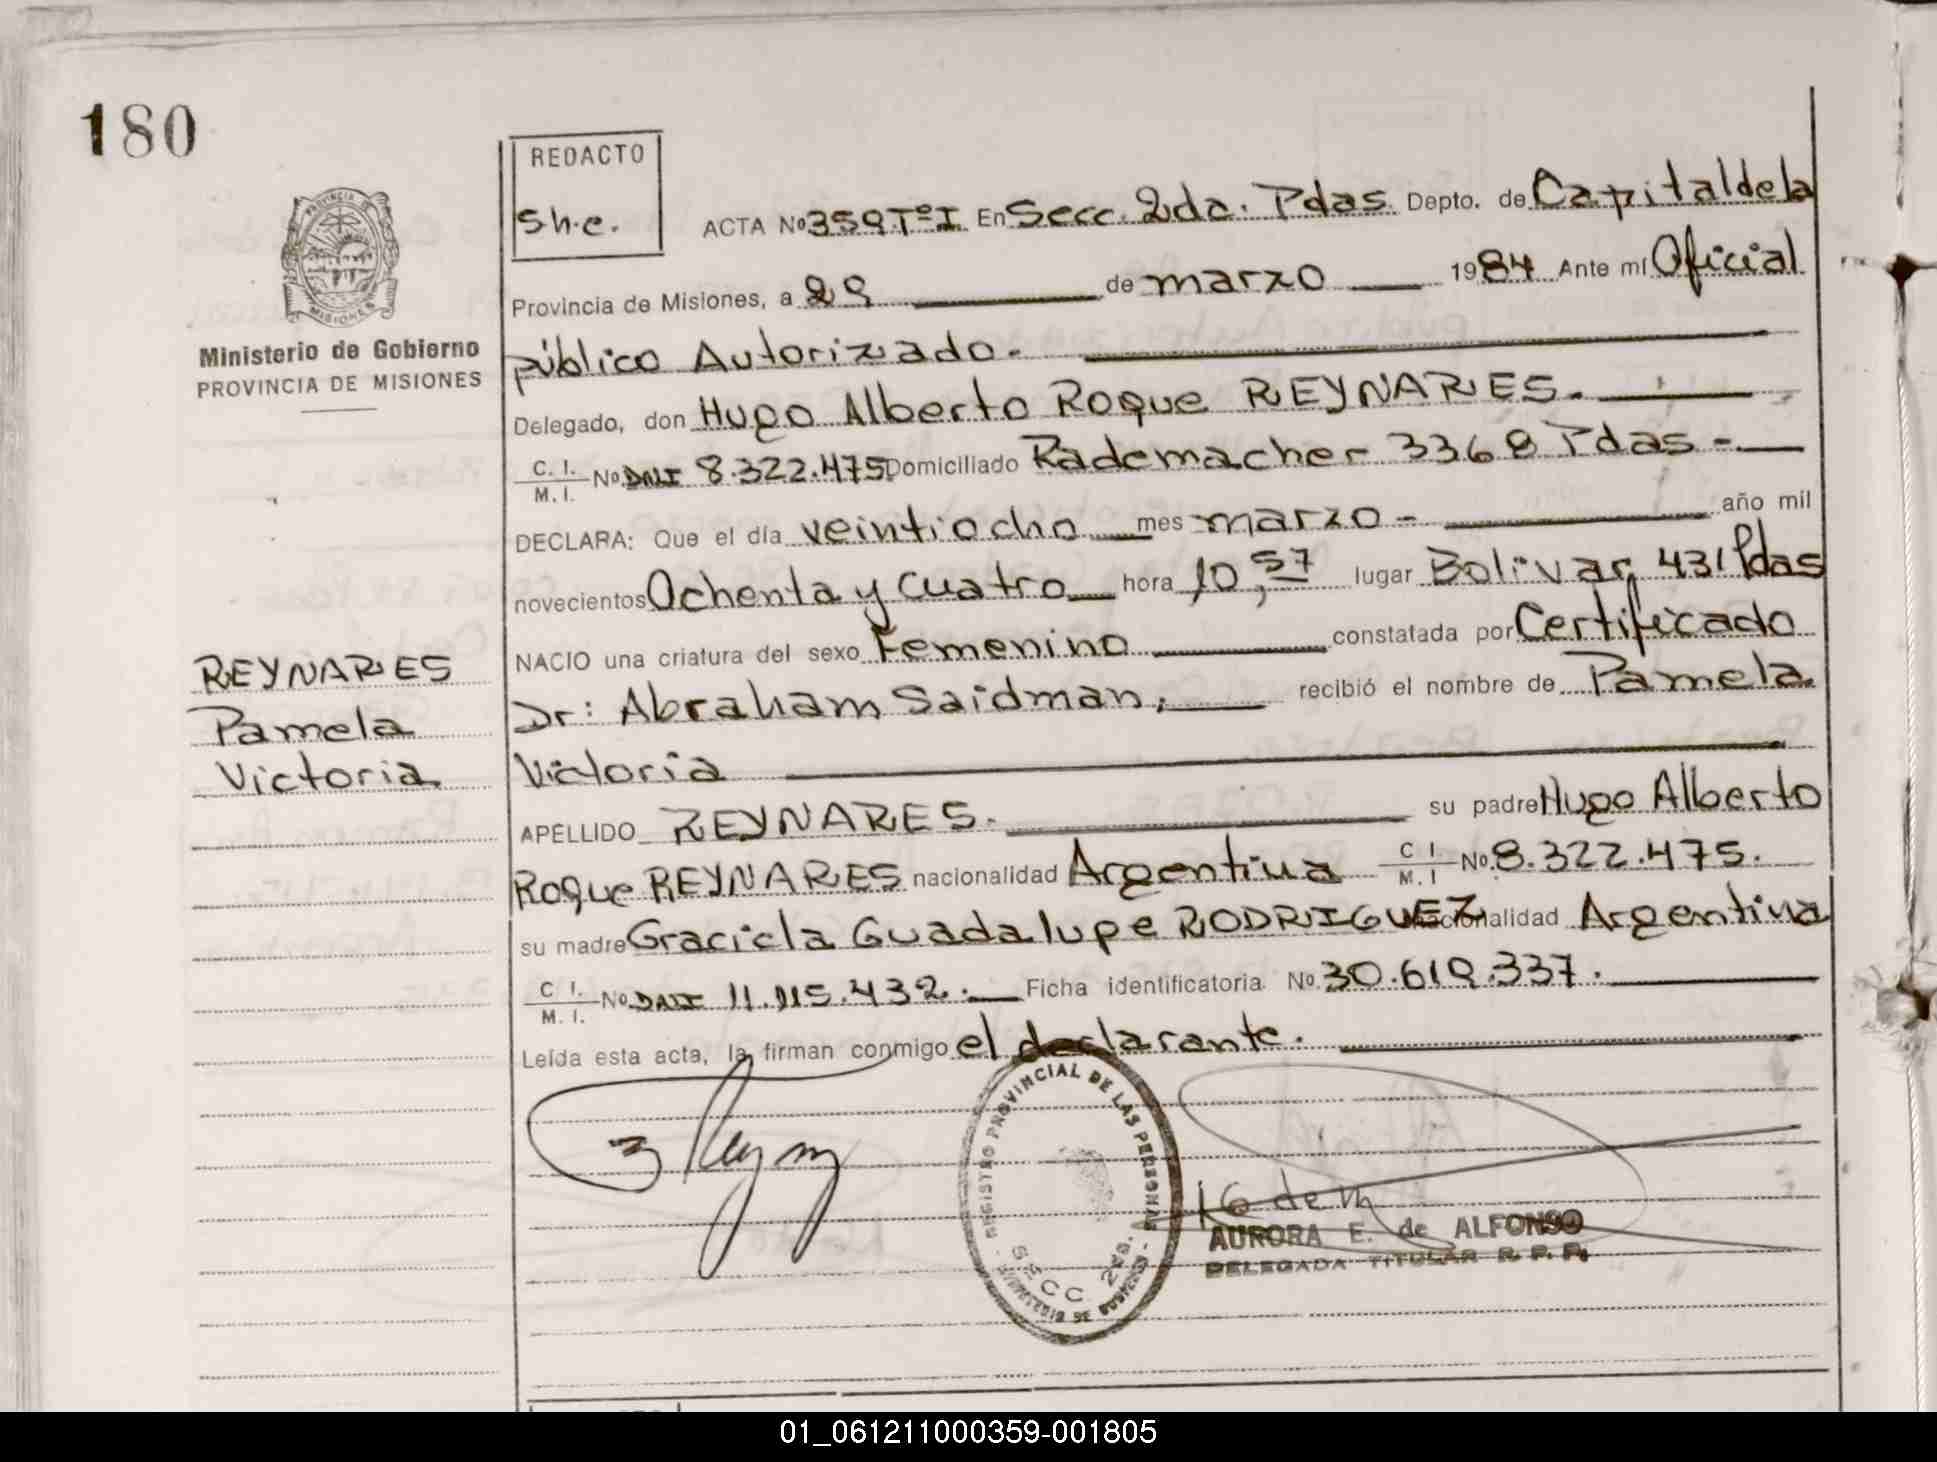 180
REDACTO
s.h.e.
ACTA No 359 Tº I En Secc. 2da. Pdas. Depto. de Capital de la
Provincia de Misiones, a 29 de marzo 1984 Ante mí Oficial
público Autorizado.
Delegado, don Hugo Alberto Roque REYNARES.
C. I. / M. I. No DNI 8.322.475 Domiciliado Rademacher 3368 Pdas -
DECLARA: Que el día veintiocho mes marzo - año mil
novecientos Ochenta y Cuatro hora 10,57 lugar Bolivar 431 Pdas
NACIO una criatura del sexo Femenino constatada por Certificado
Dr: Abraham Saidman, recibió el nombre de Pamela
Victoria
APELLIDO REYNARES. su padre Hugo Alberto
Roque REYNARES nacionalidad Argentina C I. / M. I No 8.322.475.
su madre Graciela Guadalupe RODRIGUEZ nacionalidad Argentina
C I. / M. I. No DNI 11.115.432. Ficha identificatoria No 30.619.337.
Leída esta acta, la firman conmigo el declarante.
PROVINCIA DE MISIONES
Ministerio de Gobierno
PROVINCIA DE MISIONES
REYNARES
Pamela
Victoria
REGISTRO PROVINCIAL DE LAS PERSONAS
SECC 2da.
MINISTERIO DE GOBIERNO
AURORA E. de ALFONSO
DELEGADA TITULAR R. P. P.
01_061211000359-001805